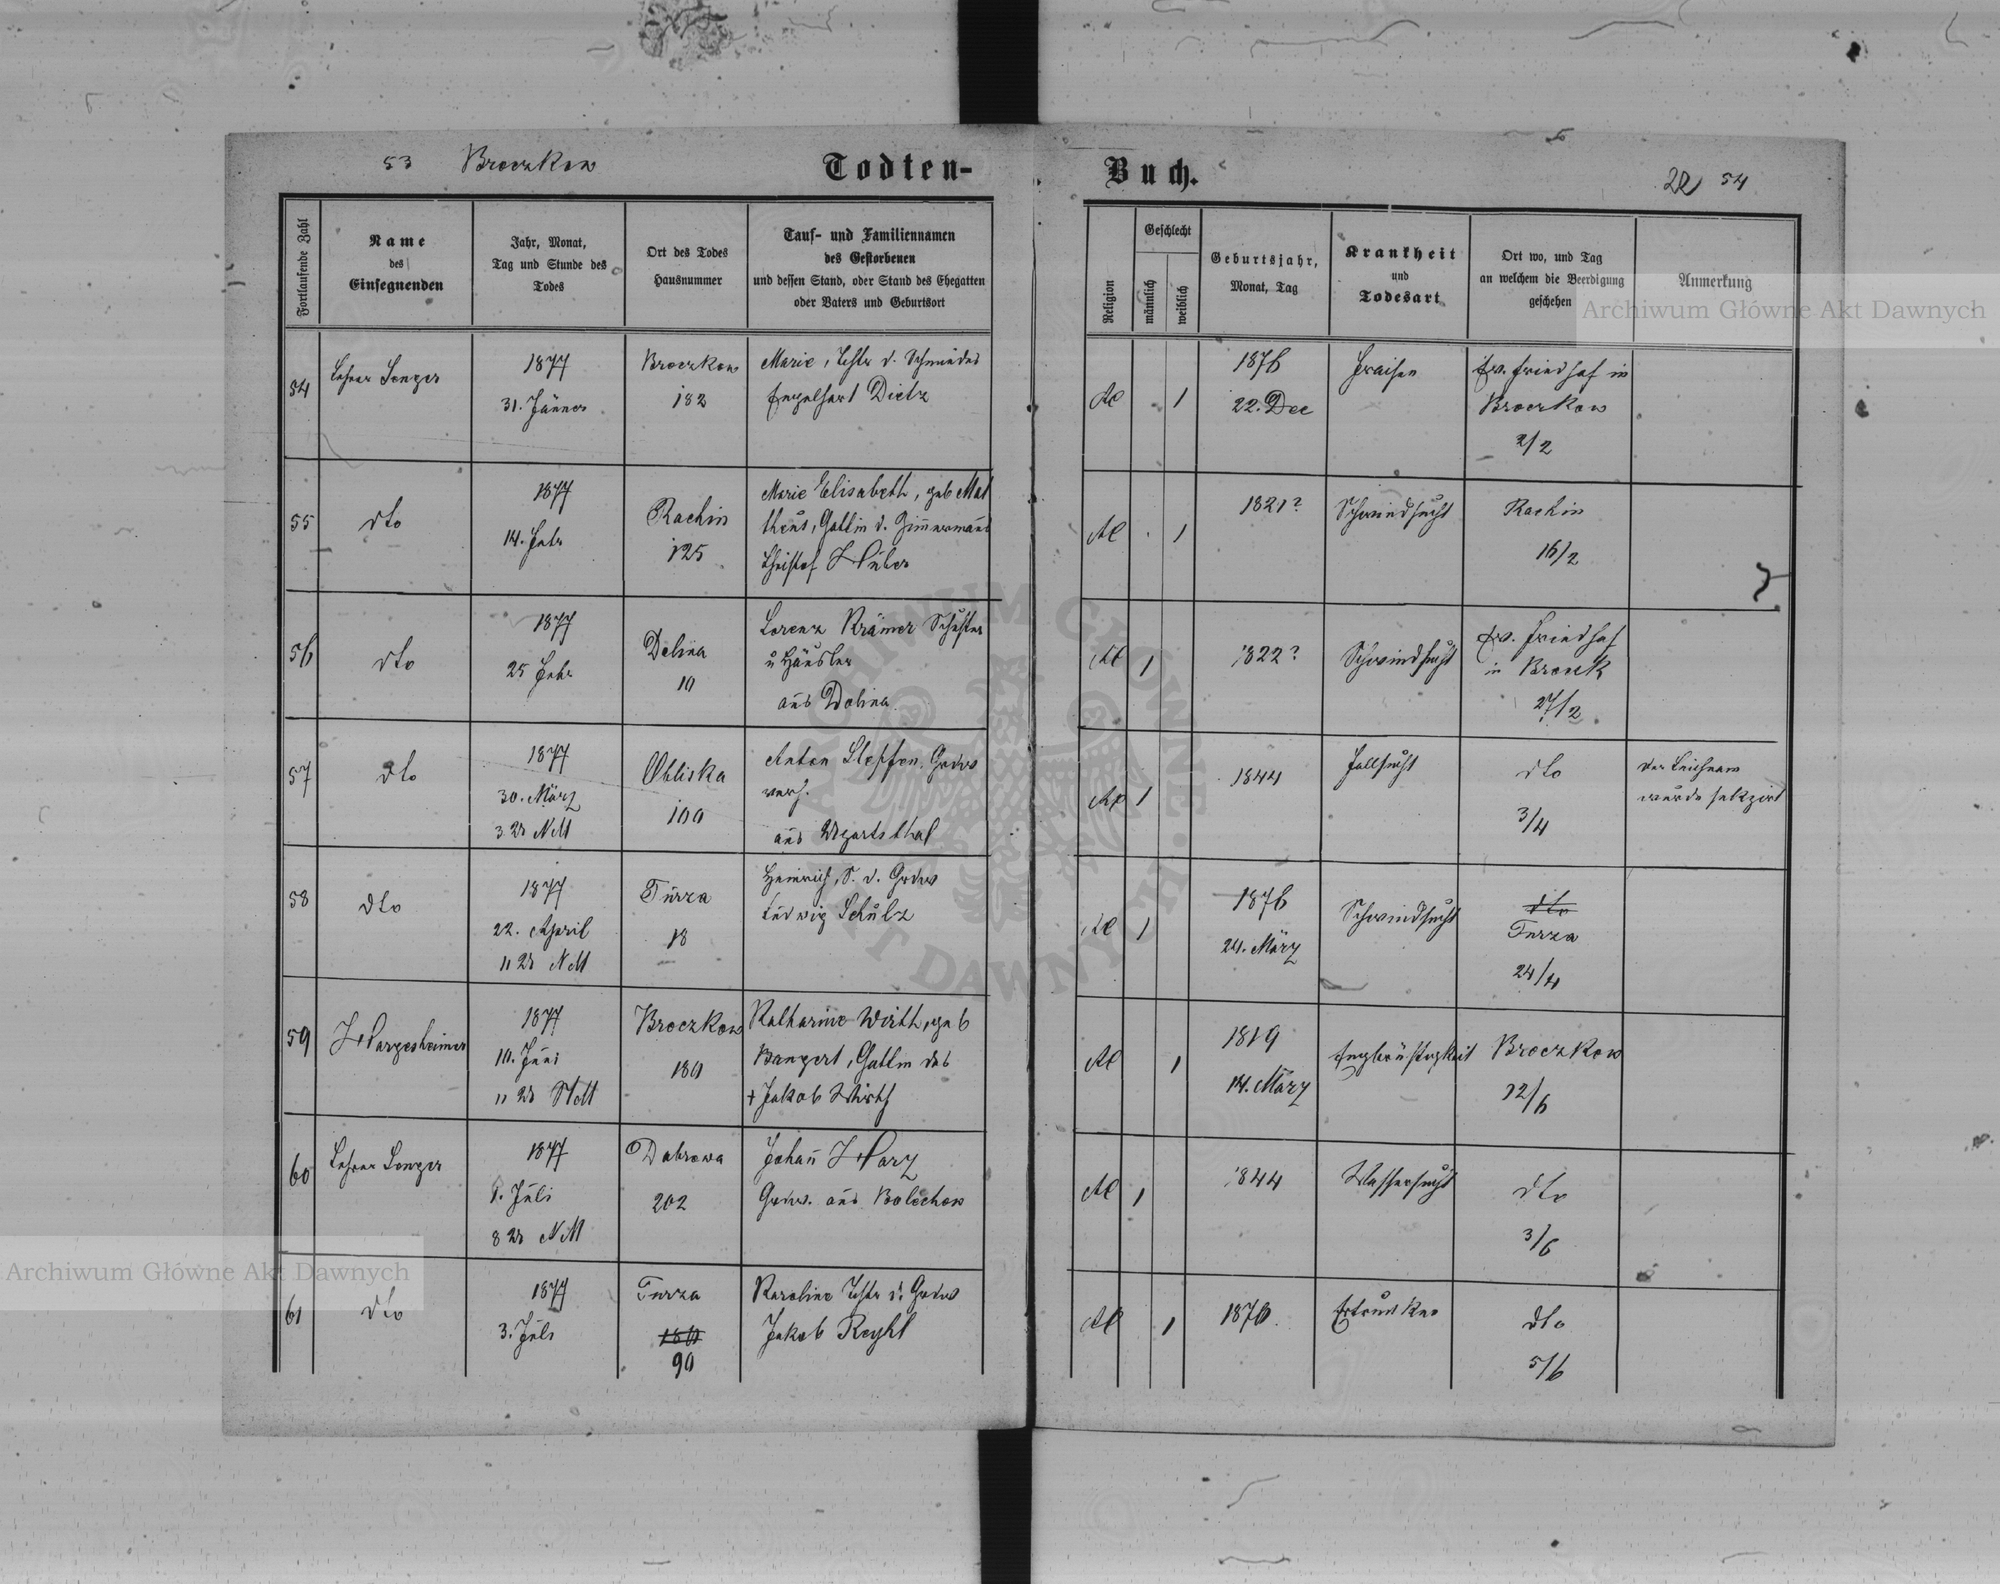 53 Broczkow Todten-
Buch. 54
Fortlaufende Zahl
Name
des
Einsegnenden
Jahr, Monat,
Tag und Stunde des
Todes
Ort des Todes
Hausnummer
Tauf- und Familiennamen
des Gestorbenen
und dessen Stand, oder Stand des Ehegatten
oder Vaters und Geburtsort
Religion
Geschlecht
männlich
weiblich
Geburtsjahr,
Monat, Tag
Krankheit
und
Todesart
Ort wo, und Tag
an welchem die Beerdigung
geschehen
Anmerkung
Archiwum Główne Akt Dawnych
54
Lehrer Senger
1877
31. Jänner
Broczkow
182
Marie, Tcht. d. Schmiedes
Engelhart Dietz
AC
1
1876
22. Dec
Fraisen
Ev. Friedhof in
Broczkow
2/2
55
dto
1877
14. Febr
Rachin
125
Marie Elisabeth, geb Mat
theus, Gattin d. Zimmermanns
Christof Huber
AC
1
1821?
Schwindsucht
Rachin
16/2
56
dto
1877
25 Febr
Dolina
10
Lorenz Krämer Schuster
u Häusler
aus Dolina
AC
1
1822?
Schwindsucht
Ev. Friedhof
in Broczk
27/2
57
dto
1877
30. März
3 Ur NM
Obliska
100
Anton Steffen, Grdw
verh.
aus Ugartsthal
1
1844
Fallsucht
dto
3/4
Der Leichnam
wurde sekzirt
58
dto
1877
22. April
11 Ur NM
Turza
18
Heinrich, S. d. Grdw
Ludwig Schulz
AC
1
1876
24. März
Schwindsucht
dto
Turza
24/4
59
Hargesheimer
1877
10. Juni
11 Ur
Broczkow
180
Katharine Wirth, geb
Bangert, Gattin des
+ Jakob Wirth
AC
1
1819
14. März
Engbrüstigkeit
Broczkow
12/6
60
Lehrer Senger
1877
1. Juli
8 Ur NM
Dabrowa
202
Johañ Harz
Grdw. aus Bolechow
AC
1
1844
Wassersucht
dto
3/6
61
dto
1877
3. Juli
Turza
180
90
Karoline Tcht d. Grdw
Jakob Reyhl
AC
1
1870.
Ertrunken
dto
5/6
Archiwum Główne Akt Dawnych
ARCHIWUM GŁÓWNE AKT DAWNYCH